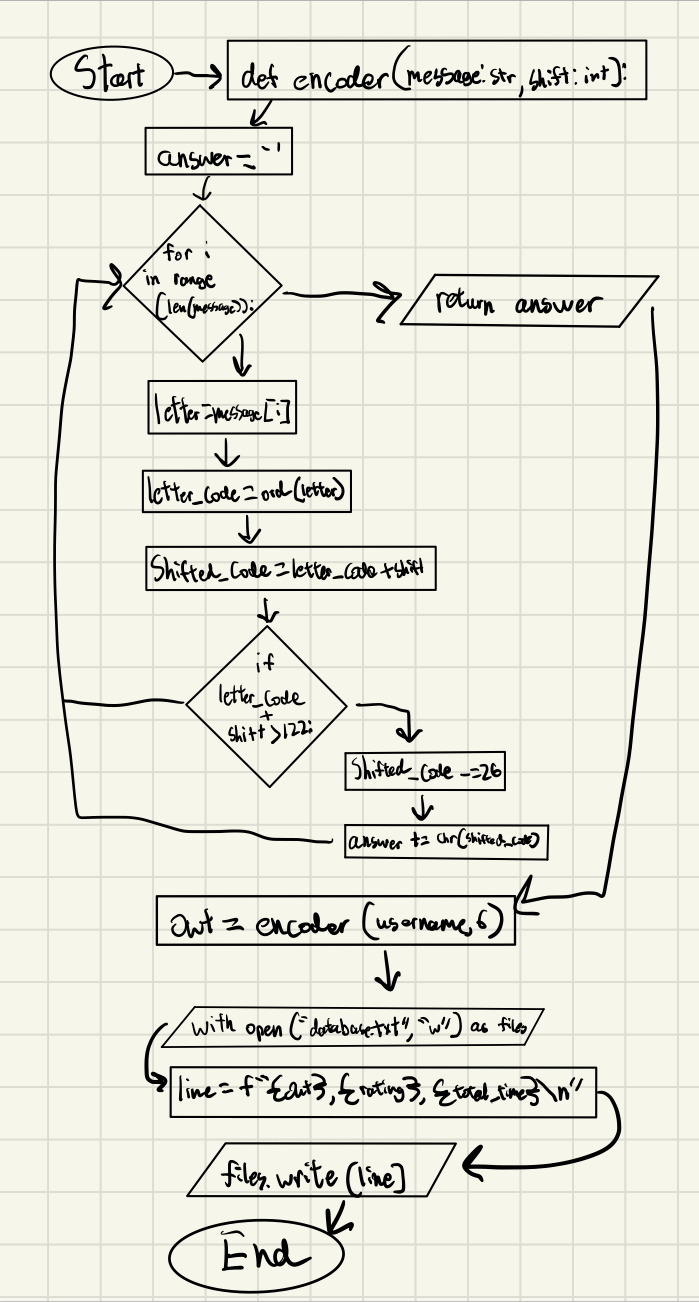 Start
def encoder(message: str, shift: int):
answer = ''
for i
in range
(len(message)):
return answer
letter=message[i]
letter_code=ord(letter)
Shifted_Code=letter_code+shift
if
letter_code
+
shift>122:
Shifted_code -=26
answer += chr(shifted_code)
Out = encoder (username,6)
with open ("database.txt","w") as files
line = f"{out}, {rating}, {total_time}\n"
files.write (line]
End